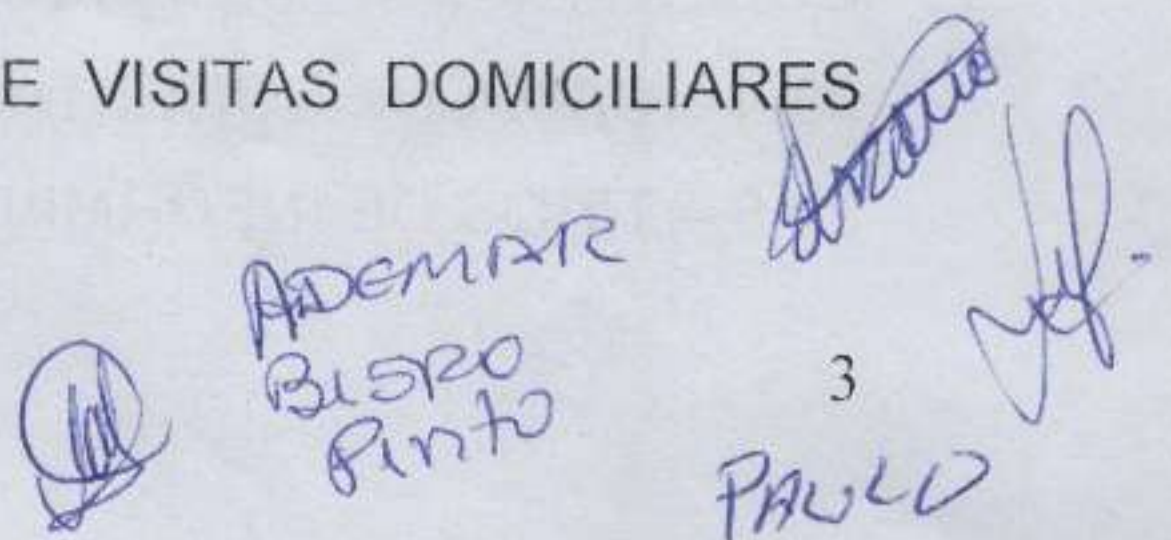 E VISITAS DOMICILIARES
ADEMAR
BISPO
Pinto
3
PAULO